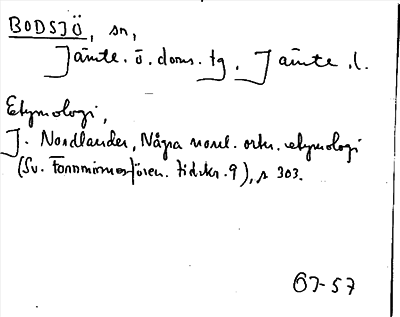 BODSJÖ, sn,
Jämte. ö. doms. tg. Jämte.l.
Etymologi,
J. Nordlander, Några norrl. ortn. etymologi
(Sv. Fornminnesfören. tidskr. 9), s 303.
OJ-57